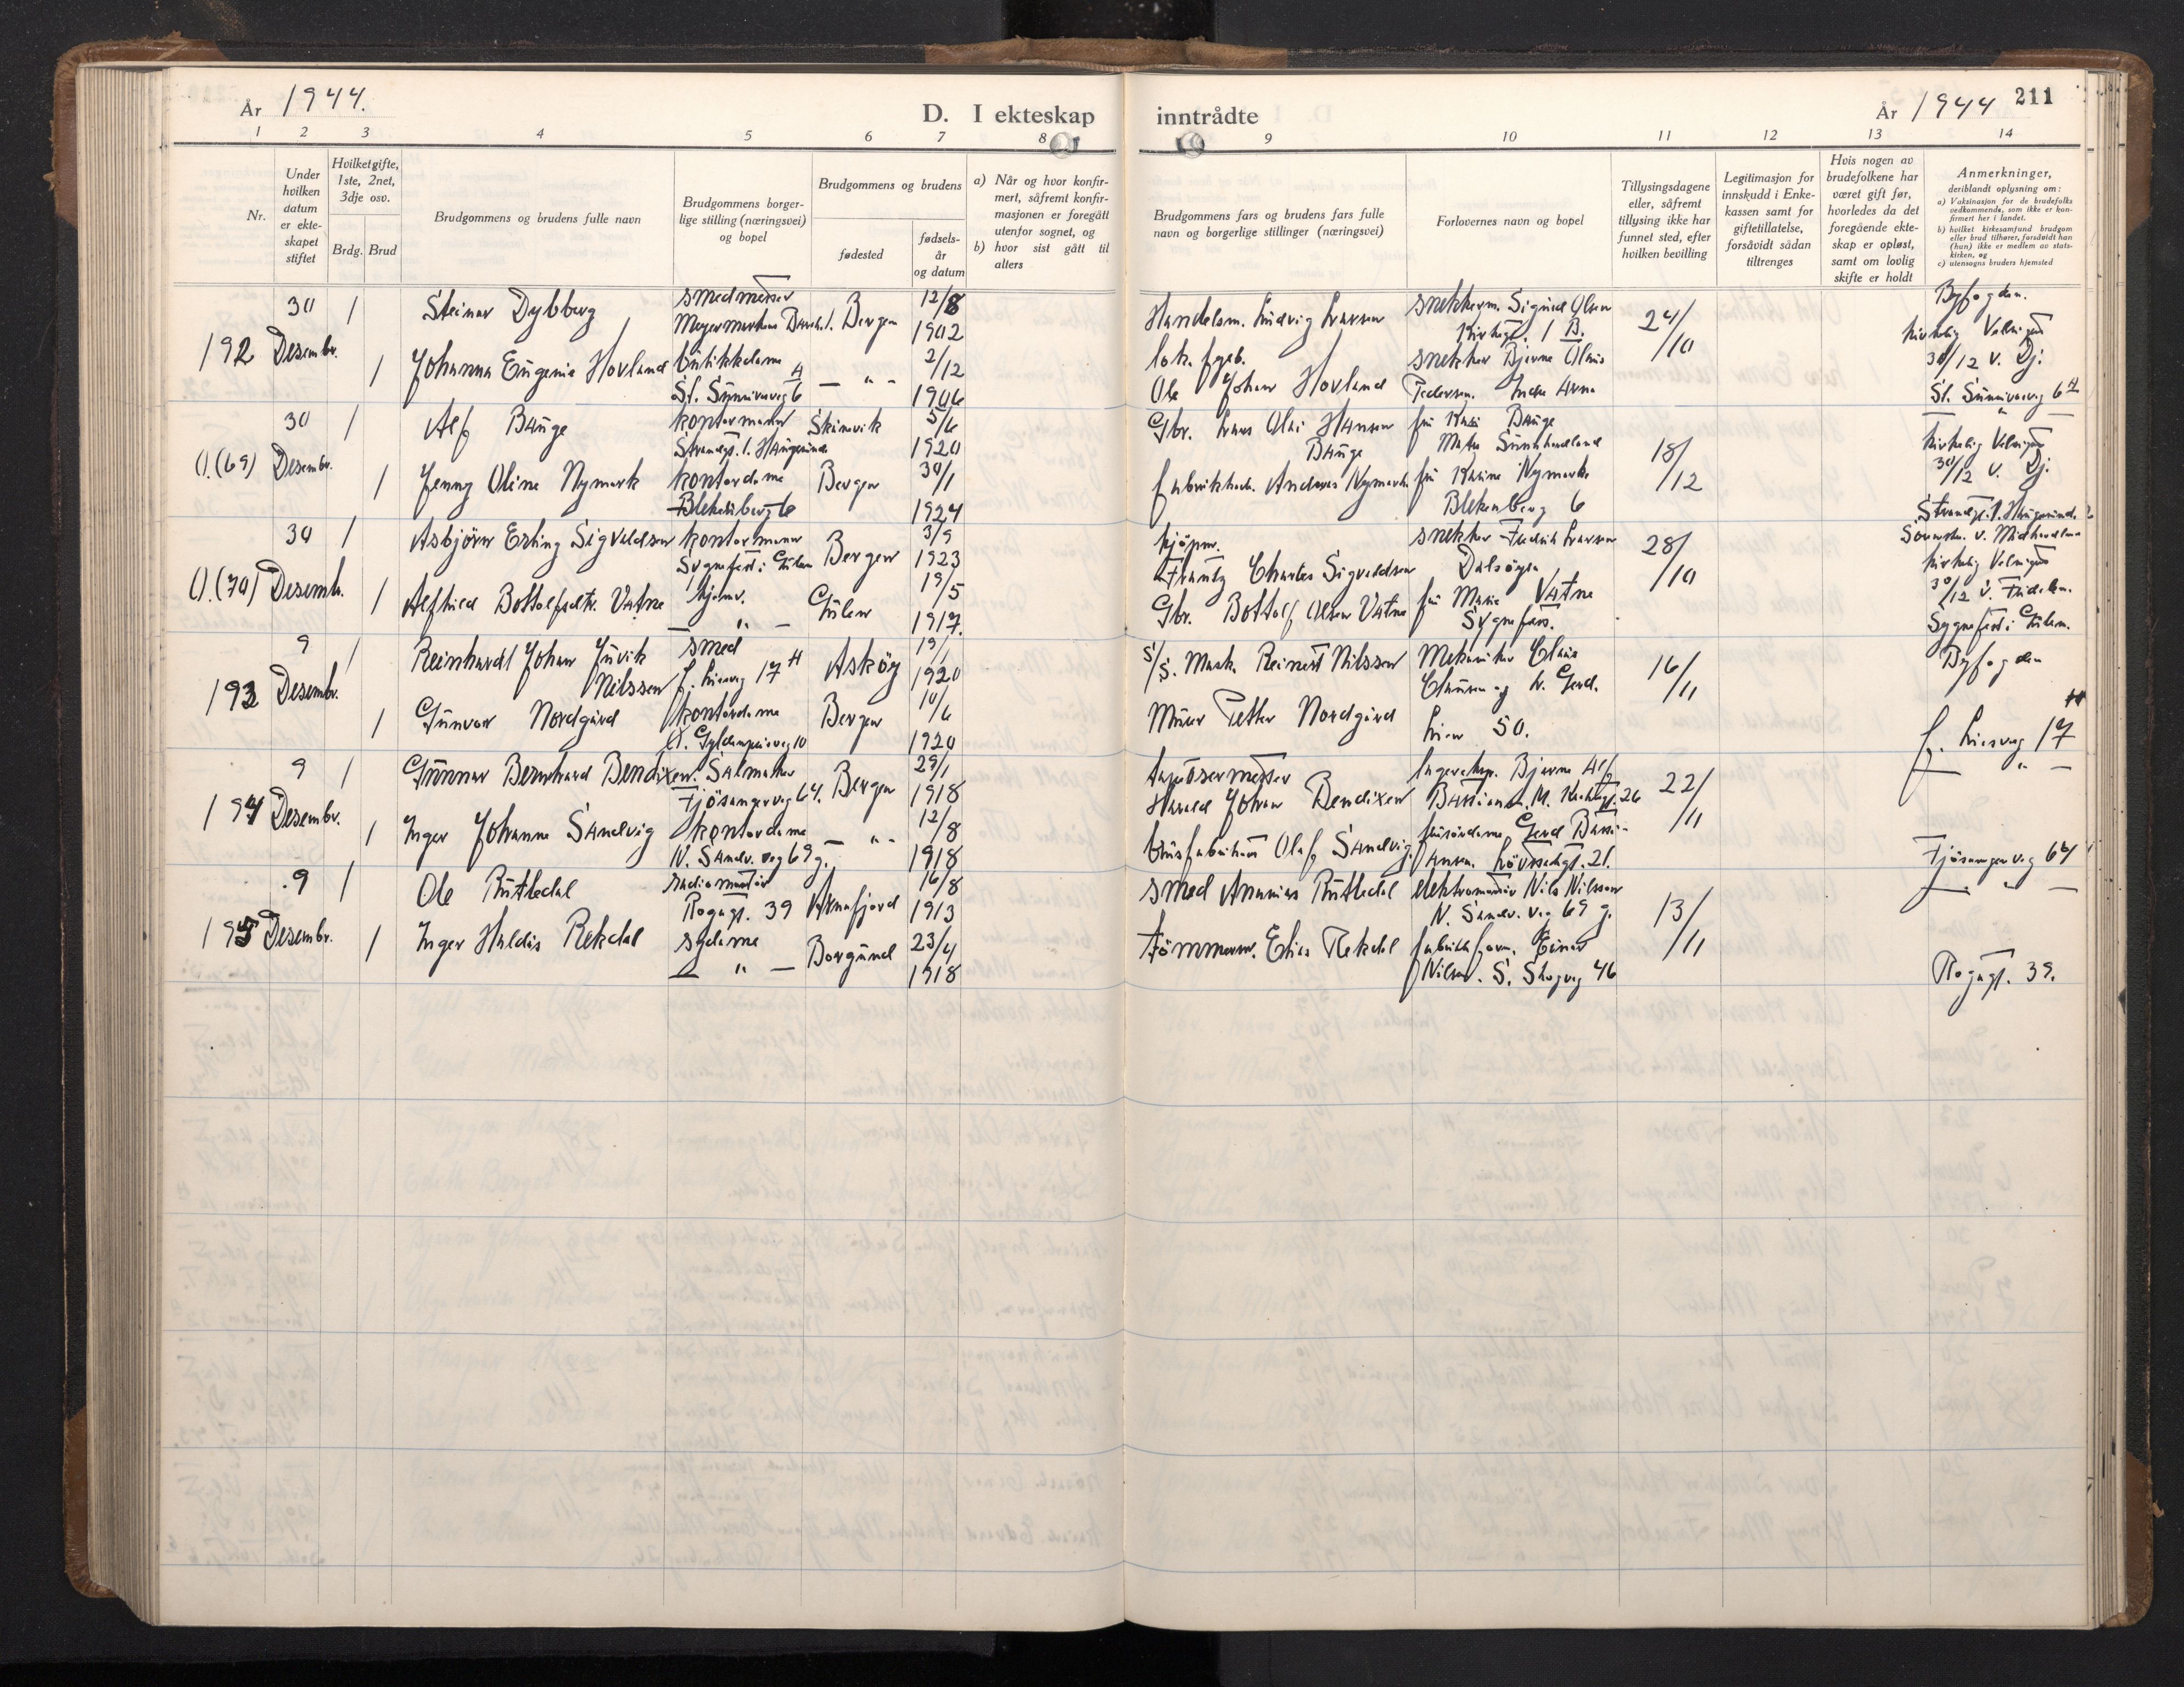 År 1944.
D. I ekteskap inntrådte
År 1944 211
1 2 3 4 5 6 7 8 9 10 11 12 13 14
Nr.
Under hvilken datum er ekteskapet stiftet
Hvilketgifte, 1ste, 2net, 3dje osv.
Brdg. Brud
Brudgommens og brudens fulle navn
Brudgommens borgerlige stilling (næringsvei) og bopel
Brudgommens og brudens
fødested
fødselsår og datum
a) Når og hvor konfirmert, såfremt konfirmasjonen er foregått utenfor sognet, og
b) hvor sist gått til alters
Brudgommens fars og brudens fars fulle navn og borgerlige stillinger (næringsvei)
Forlovernes navn og bopel
Tillysingsdagene eller, såfremt tillysing ikke har funnet sted, efter hvilken bevilling
Legitimasjon for innskudd i Enkekassen samt for giftetillatelse, forsåvidt sådan tiltrenges
Hvis nogen av brudefolkene har været gift før, hvorledes da det foregående ekteskap er opløst, samt om lovlig skifte er holdt
Anmerkninger,
deriblandt oplysning om:
a) Vaksinasjon for de brudefolks vedkommende, som ikke er konfirmert her i landet.
b) hvilket kirkesamfund brudgom eller brud tilhører, forsåvidt han (hun) ikke er medlem av statskirken, og
c) utensogns bruders hjemsted
192 30 Desembr. 1
Steinar Dybberg
smedmester
Bergen 12/8 1902
Handelsm. Ludvig Larsen
snekkerm. Sigurd Olsen
Kirkegt. 1 B.
24/10
Byfogden.
1 Johanna Eugenie Hovland
butikkdame
St. Sunnivaveg 6 A
— " — 2/12 1906
lok. fyrb.
Ole Johan Hovland
snekker Bjarne Olaus
Pedersen. Indre Arna
kirkelig Velsignet
30/12 v. Dj.
St. Sunnivaveg 6 A
— " —
O.(69) 30 Desembr. 1
Alf Bauge
kontormann
Strandgt. 1. Haugesund
Skånevik 5/6 1920
Gbr. Lars Olai Hansen
Bauge
fru Kari Bauge
Matre Sunnhordland
18/12
kirkelig Velsignet
30/12 v. Dj.
1 Jenny Oline Nymark
kontordame
Blekenberg 6
Bergen 30/1 1924
fabrikkarb. Andreas Nymark
fru Karine Nymark
Blekenberg 6
Strandgt. 1. Haugesund.
O.(70) 30 Desemb. 1
Asbjørn Erling Sigvaldsen
kontormann
Sygnefest i Gulen
Bergen 3/9 1923
kjøpm.
Frantz Charles Sigvaldsen
snekker Fredrik Larsen
Dalsøyra
28/10
kirkelig Velsignet
30/12
1 Alfhild Bottolfsdtr. Vatne
hjemv.
— " —
Gulen 19/5 1917.
Gbr. Bottolf Olsen Vatne
fru Marie Vatne
Sygnefest.
Sygnefest i Gulen.
193 9 Desembr. 1
Reinhardt Johan Juvik
Nilssen
smed
f. Liesveg 17 H
Askøy 19/1 1920
S/S. Mask. Reinert Nilssen
Mekaniker Claus
Clausen og h. Gerd.
Lien 50.
16/11
Byfogden
1 Gunvor Nordgård
kontordame
Bergen 10/6 1920
Murer Petter Nordgård
f. Liesveg 17 H
— " —
194 9 Desembr. 1
Gunnar Bernhard Bendixen.
Salmaker
Fjøsangerveg 64.
Bergen 29/1 1918
tapetsermester
Harald Johan Bendixen
Bjarne Alf
22/11
1 Inger Johanne Sandvig
kontordame
N. Sandv. veg 69 g.
— " — 12/8 1918
Olaf Sandvig.
Fjøsangerveg 64
— " —
195 9 Desembr. 1
Ole Rutledal
radiomontør
Rogagt. 39
Arnafjord 16/8 1913
smed Ananias Rutledal
elektromontør Nils Nilssen
N. Sandv. veg 69 g.
13/11
1 Inger Haldis Rekdal
sydame
— " —
Borgund 23/4 1918
tømmerm. Elias Rekdal
fabrikkform. Einar
Nilsen. S. Skogveg 46
Rogagt. 39.